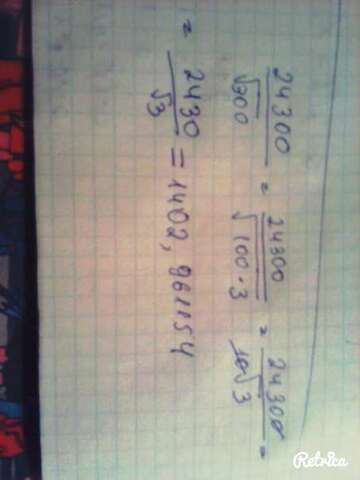 24300/√300 = 24300/√100·3 = 24300/10√3 =
= 2430/√3 = 1402,961154
Retrica